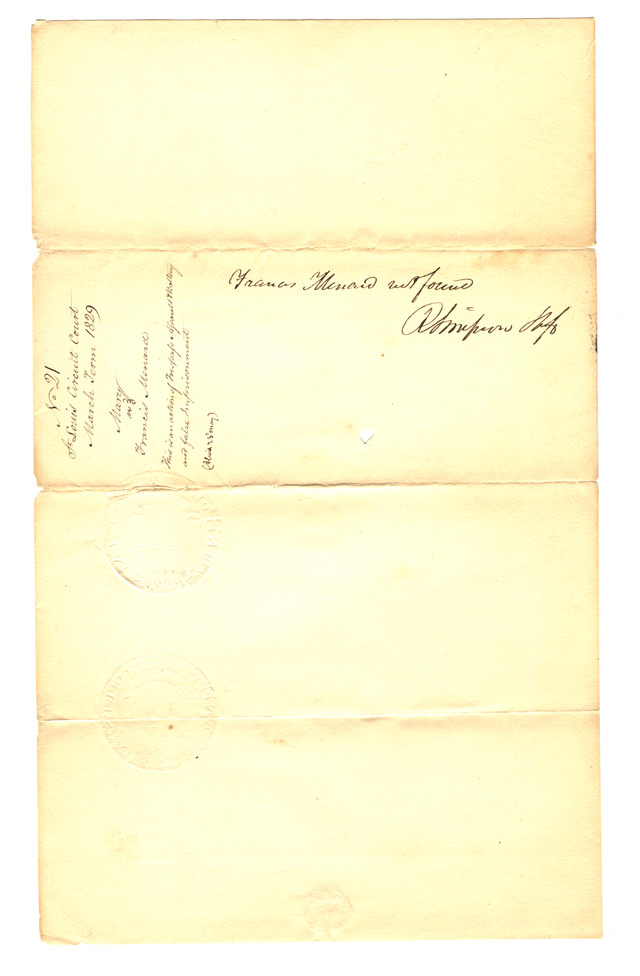 No 21
St Louis Circuit Court
March Term 1829
Mary
vs
Francis Menard
This is an action of Trespass Assault & Battery
and false Imprisonment
Francis Menard not found
R Simpson Shff